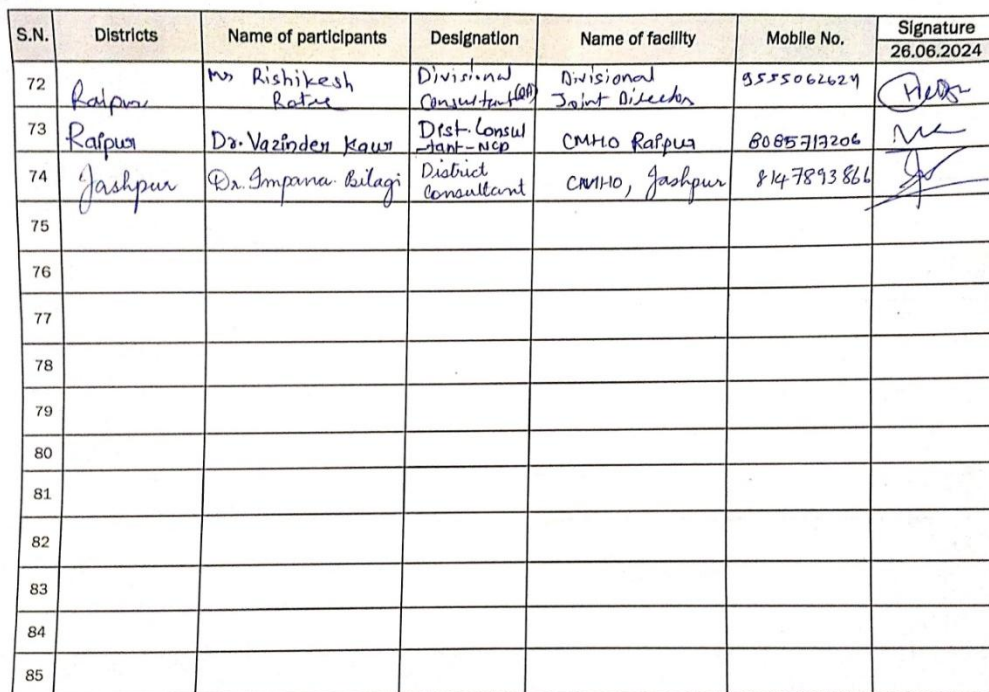 S.N. Districts Name of participants Designation Name of facility Mobile No. Signature
26.06.2024
72 Raipur Mr Rishikesh Ratre Divisional Consultant Divisional Joint Director 9555062624
73 Raipur Dr. Vazinder Kaur Dist. Consul -tant-NCD CMHO Raipur 8085717206
74 Jashpur Dr. Impana. Bilagi District Consultant CMHO, Jashpur 8147893866
75
76
77
78
79
80
81
82
83
84
85